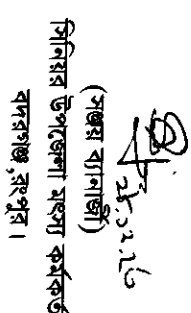 (সঞ্জয় ব্যানার্জী)
সিনিয়র উপজেলা মৎস্য কর্মকর্ত
বদরগঞ্জ, রংপুর।